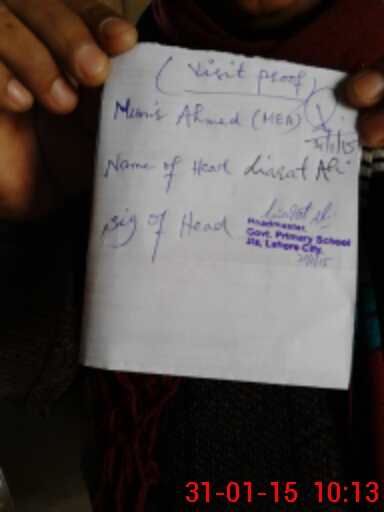 (Visit proof)
Munis Ahmed (MEA)
31/1/15
Name of Head Liasat Ali
Sig of Head Liasat Ali
Headmaster,
Govt. Primary School
Lahore City.
31/1/15
31-01-15 10:13